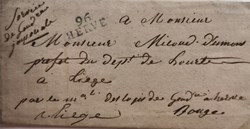 Service
de Gend
96
HERVE
A Monsieur
Monsieur Micoud d'umons
préfet du dept de Lourte
a Liège
par le des logis de Gend a herve
Liège